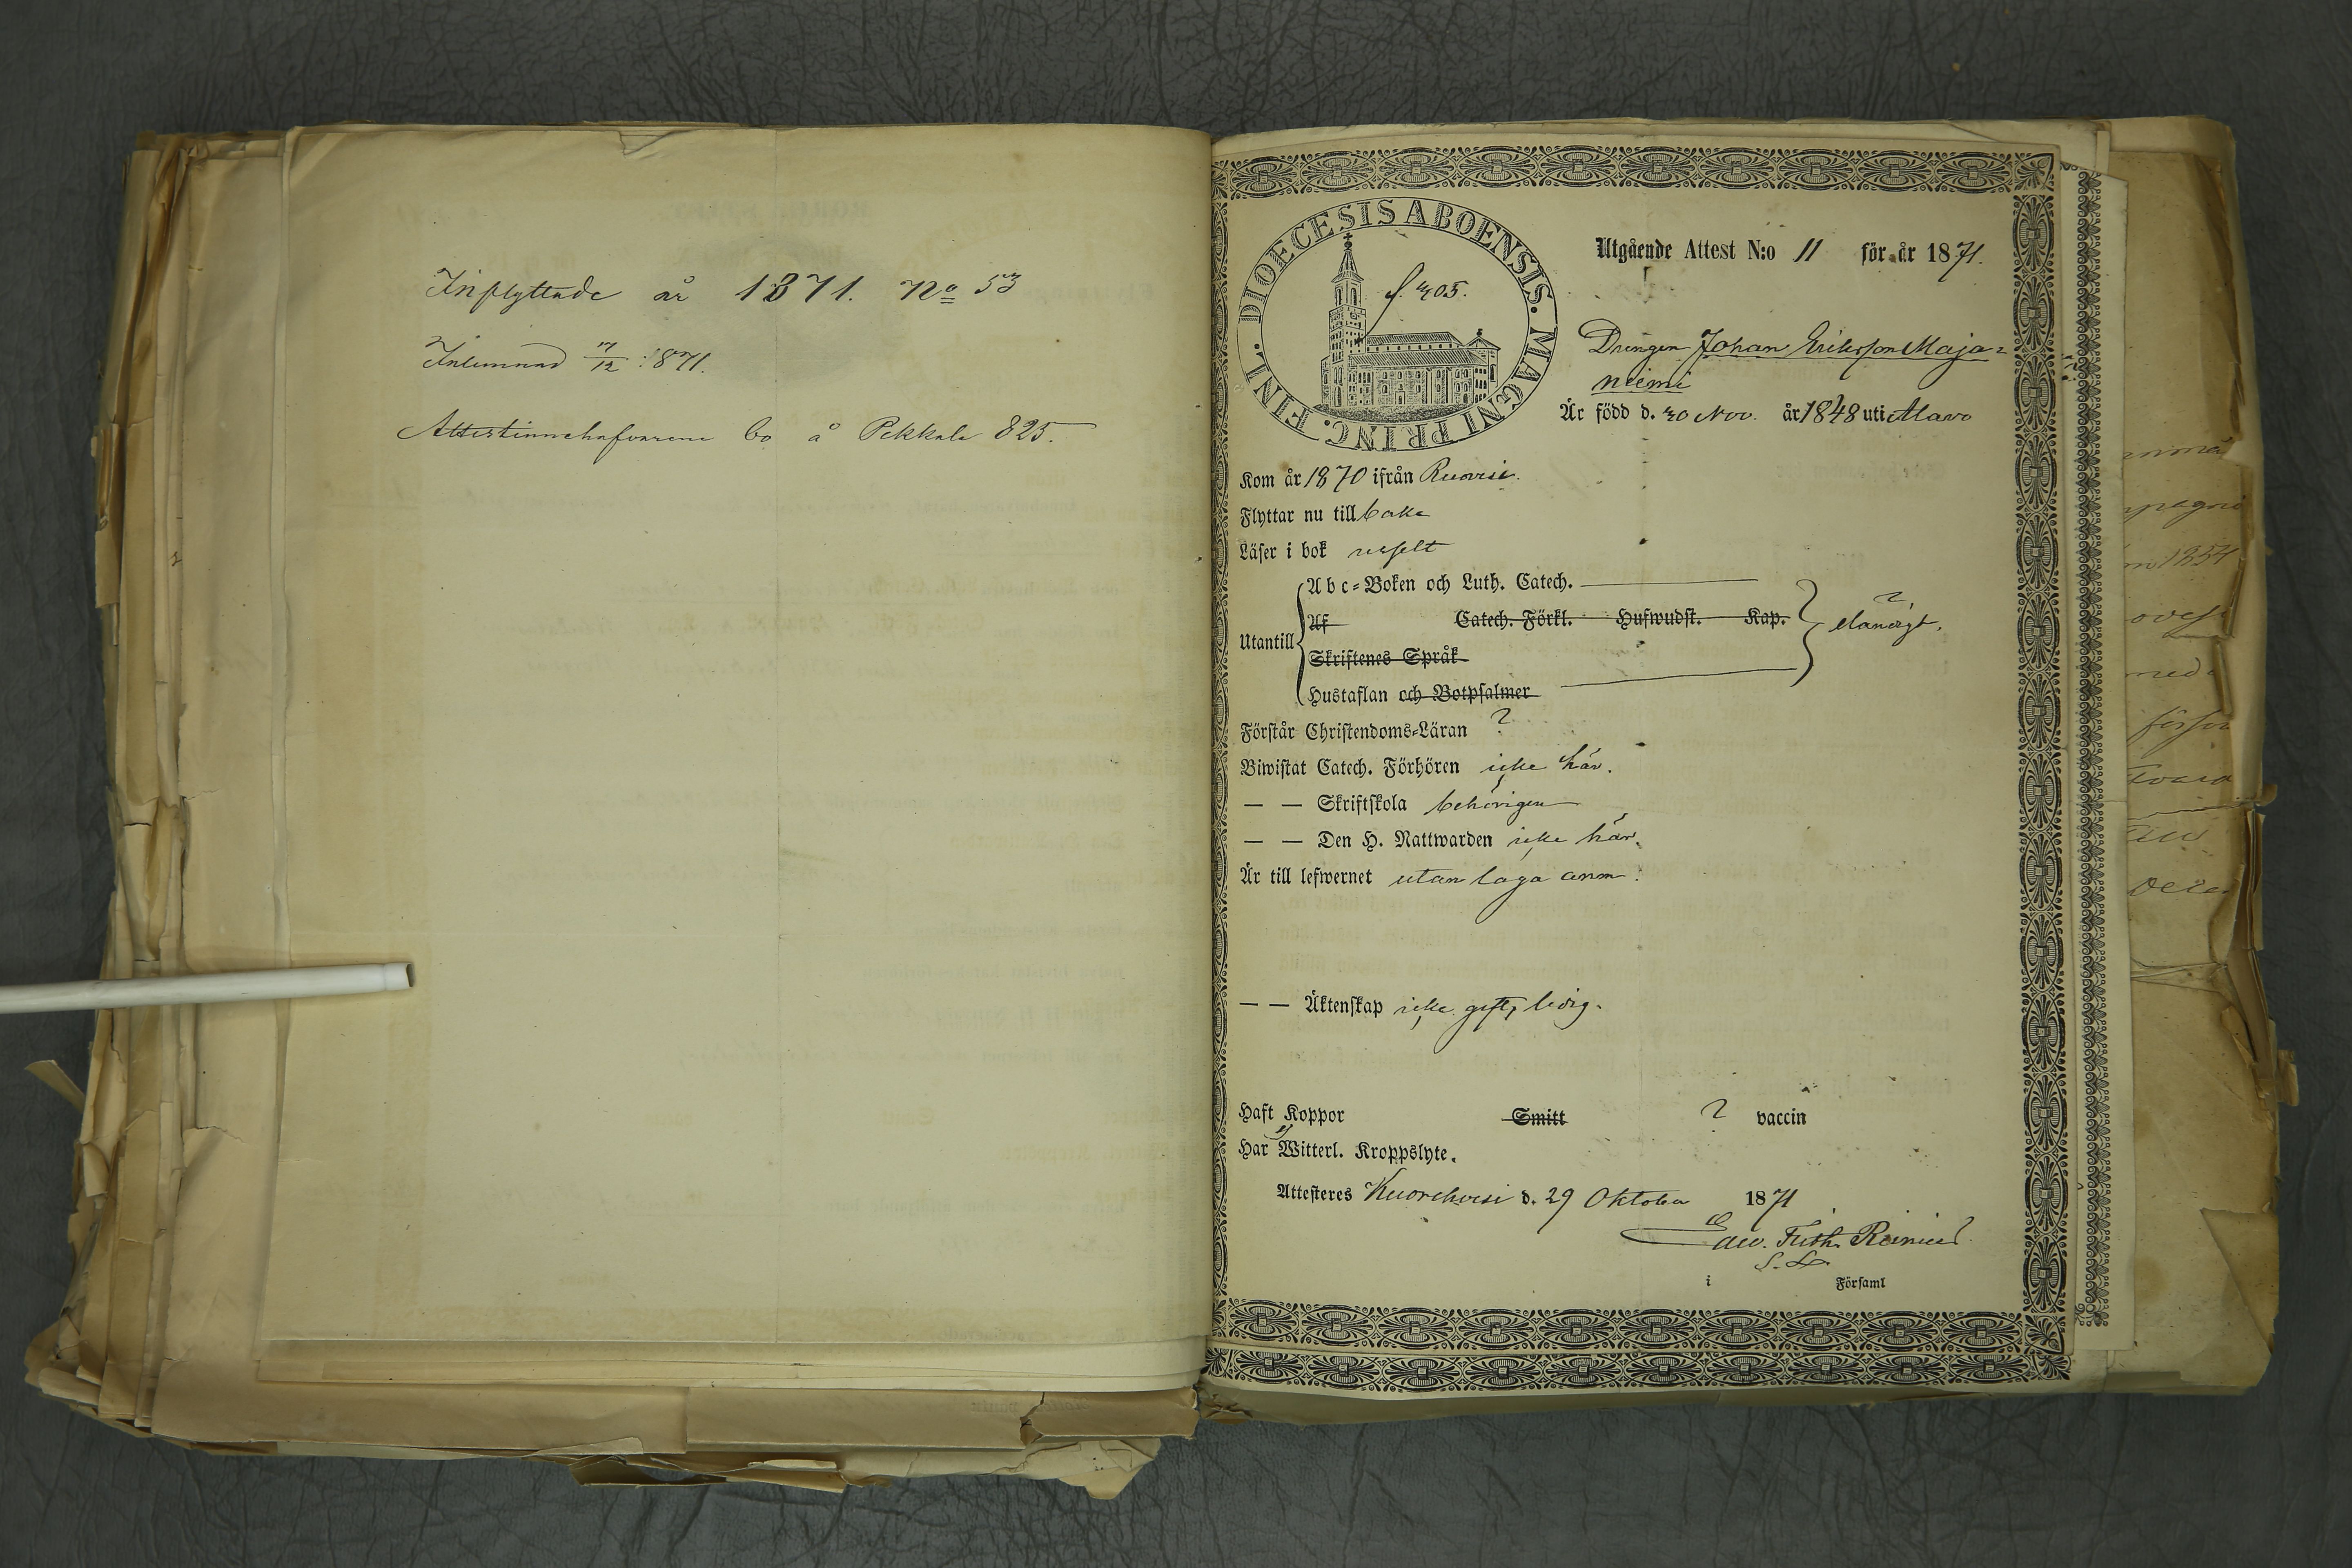 Inflyttade år 1871. No 53
Inlemnad 17/12 1871.
Attestinnehafvarene bo å Pekkala 825.
DIOECESIS ABOENSIS. MAGNI PRINC. FINL.
f. 305.
Utgående Attest N:o 11 för år 1871.
Drengen Johan Eriksson Maja=
niemi
Är född d. 30 Nov. år 1848 uti Alavo
Kom år 1870 ifrån Ruovesi.
Flyttar nu tillbaka
Läser i bok uselt
Utantill
Abc=Boken och Luth. Catech.
Af Catech. Förkl. Hufwudst. Kap.
eländigt.
Skriftenes Språk
Hustaflan och Botpsalmer
Förstår Christendoms=Läran ?
Biwistat Catech. Förhören icke här.
— — Skriftskola behörigen
— — Den H. Nattwarden icke här.
Är till lefwernet utan laga anm.
— — Äktenskap icke gift, ledig.
Haft Koppor Smitt ? vaccin
Har ej Witterl. Kroppslyte.
Attesteres Kuorehvesi d. 29 Oktober 1871
i Församl